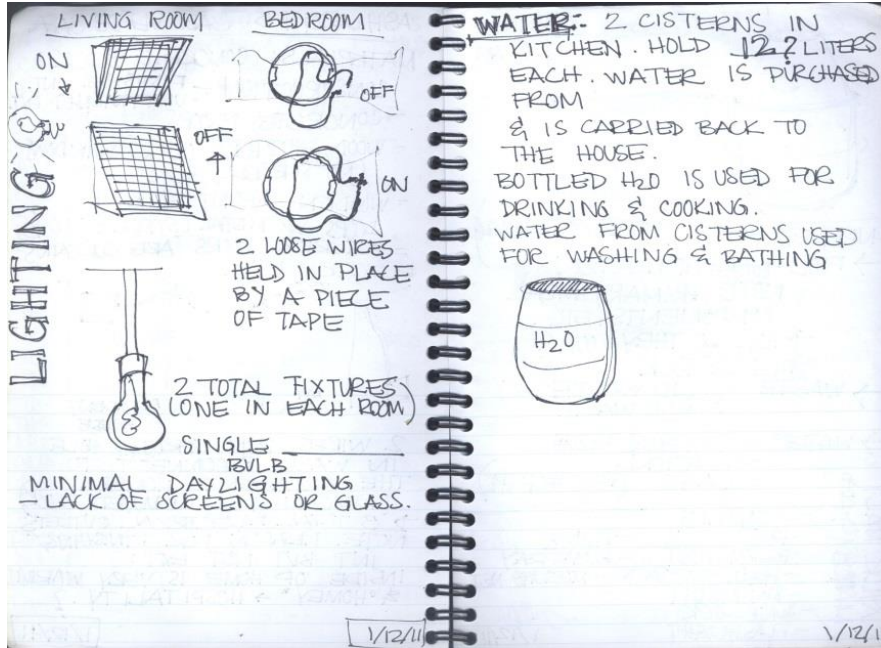 LIGHTING
LIVING ROOM
ON
OFF
BEDROOM
OFF
ON
2 LOOSE WIRES
HELD IN PLACE
BY A PIECE
OF TAPE
2 TOTAL FIXTURES
(ONE IN EACH ROOM)
SINGLE ________
BULB
MINIMAL DAYLIGHTING
LACK OF SCREENS OR GLASS.
1/12/11
WATER: 2 CISTERNS IN
KITCHEN. HOLD 12? LITERS
EACH. WATER IS PURCHASED
FROM
& IS CARRIED BACK TO
THE HOUSE.
BOTTLED H2O IS USED FOR
DRINKING & COOKING.
WATER FROM CISTERNS USED
FOR WASHING & BATHING
H2O
1/12/1